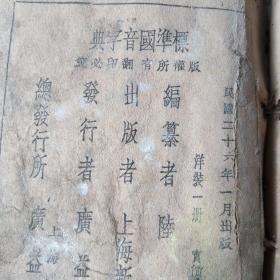 標準國音字典
版權所有 翻印必究
民國二十六年一月出版
洋裝一冊 實價
編纂者 陸
出版者 上海新
發行者 廣益
總發行所 廣益
上海